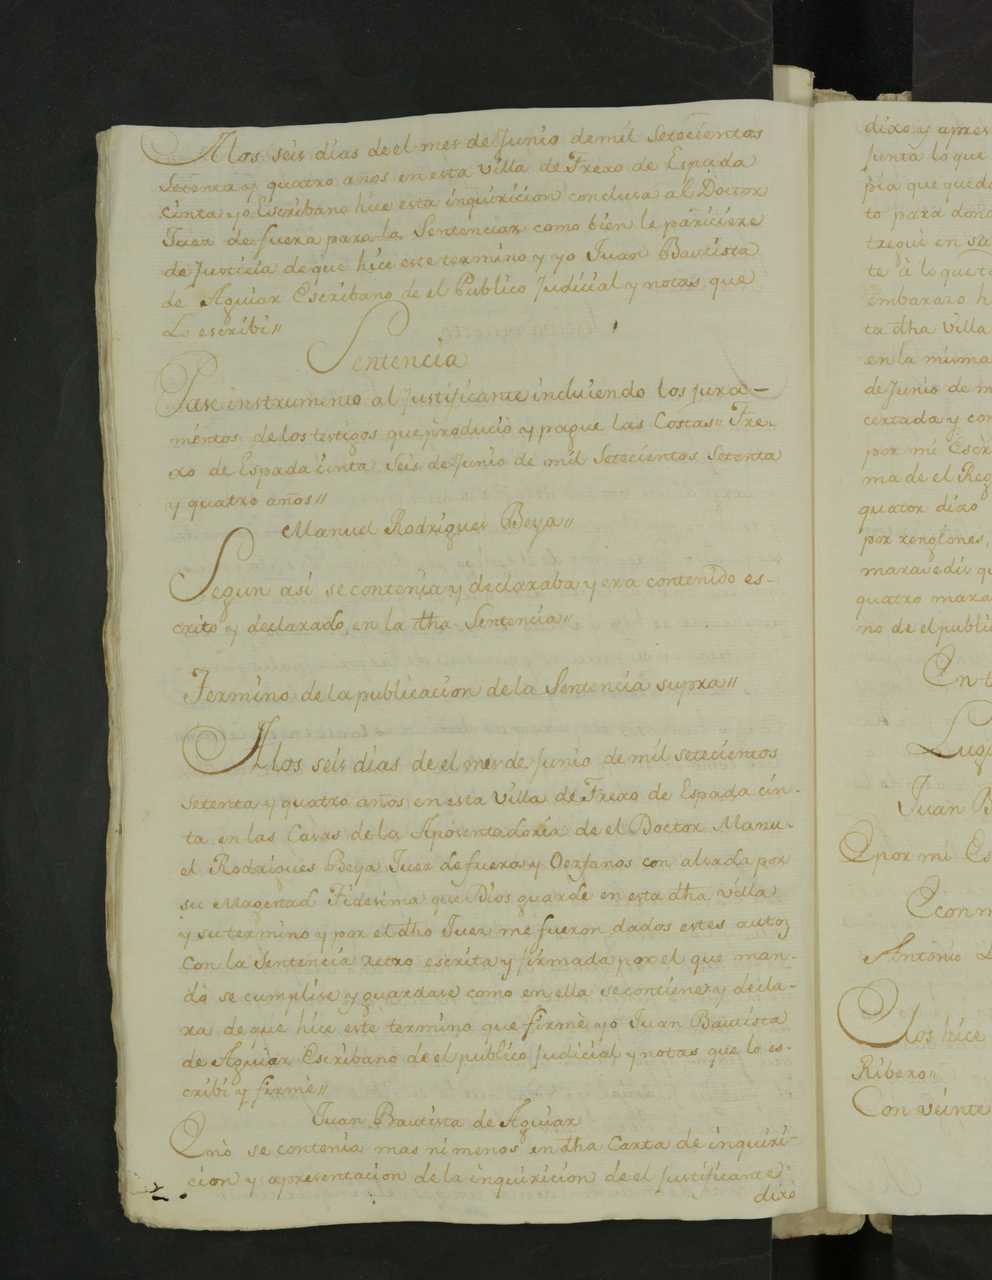 A los seis dias de el mes de Junio de mil Setecientos
Setenta y quatro años en esta Villa de Frexo de Espada
cinta yo Escribano hice esta inquiricion conclusa al Doctor
Juez de fuera para la Sentenciar como bien le pariciere
de Justicia de que hice este termino y yo Juan Bautista
de Aguiar Escribano de el Publico Judicial y notas que
Lo escribi//
Sentencia
Pase instrumento al Justificante incluiendo los jura-
mentos de los testigos que produció y pague las Costas// Fre-
xo de Espada cinta Seis de Junio de mil Setecientos Setenta
y quatro años//
Manuel Rodrigues Beya//
Segun asi se contenia y declaraba y era contenido es-
crito y declarado en la dha Sentencia//
Termino de la publicacion de la Sentencia supra//
A los seis dias de el mes de Junio de mil setecientos
setenta y quatro años en esta Villa de Frexo de Espada cin-
ta en las Casas de la Aposentadoria de el Doctor Manu-
el Rodrigues Beya Juez de fuera y Oerfanos con alzada por
su Magestad Fidesima que Dios guarde en esta dha villa
y su termino y por el dho Juez me fueron dados estes autoz
con la Sentencia retro escrita y firmada por el que man-
dó se cumplise y guardase como en ella se contiene y decla-
ra de que hice este termino que firmè yo Juan Bautista
de Aguiar Escribano de el publico Judicial y notas que lo es-
cribi y firme//
Juan Bautista de Aguiar
Enò se contenia mas ni menos en dha Carta de inquiri-
cion y apresentacion de la inquiricion de el Justificante
dixo
dixo y apres
Junta lo que
pia que quedo
to para dond
tregué en su
te à lo que t
embarazo h
ta dha Villa
en la misma
de Junio de m
certada y con
por mi Escri
ma de el Reg
quator dixo
por renglones,
maravedis qu
quatro mara
no de el public
En t
Luga
Juan B
E por mi Es
E con m
Antonio L
los hice
Ribero//
Con veinte